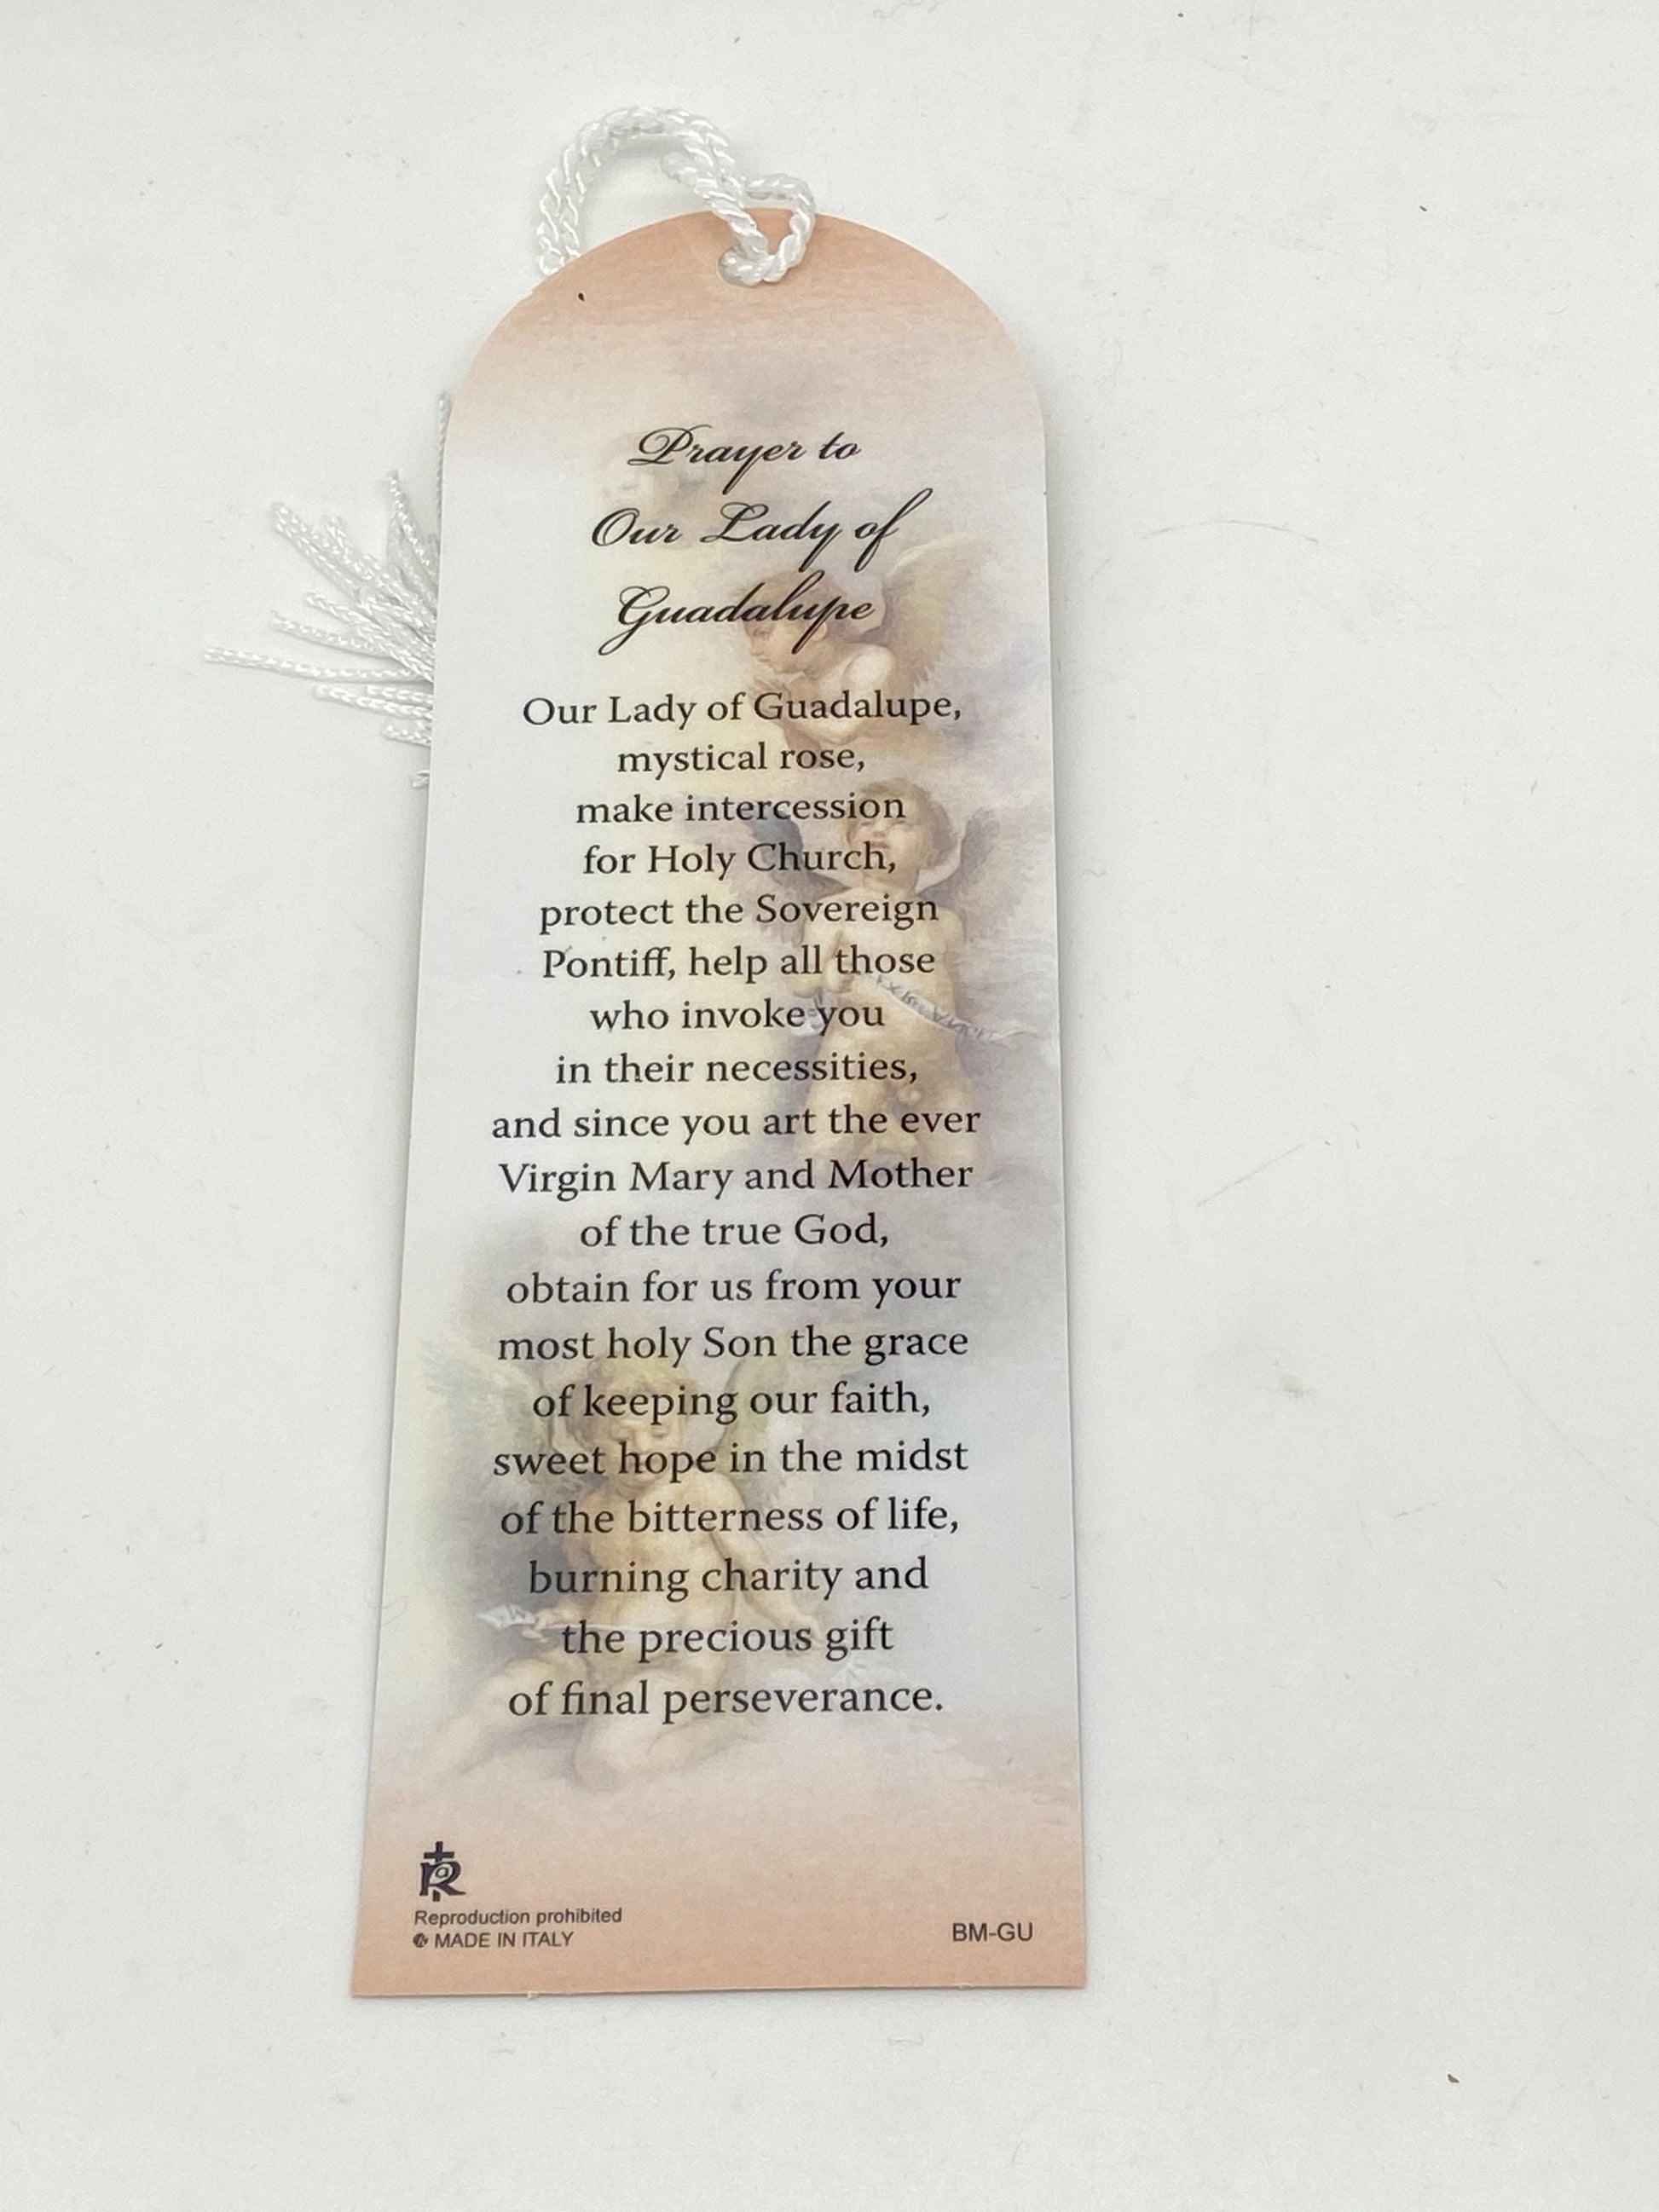 Prayer to
Our Lady of
Guadalupe
Our Lady of Guadalupe,
mystical rose,
make intercession
for Holy Church,
protect the Sovereign
Pontiff, help all those
who invoke you
in their necessities,
and since you art the ever
Virgin Mary and Mother
of the true God,
obtain for us from your
most holy Son the grace
of keeping our faith,
sweet hope in the midst
of the bitterness of life,
burning charity and
the precious gift
of final perseverance.
Reproduction prohibited
MADE IN ITALY
BM-GU